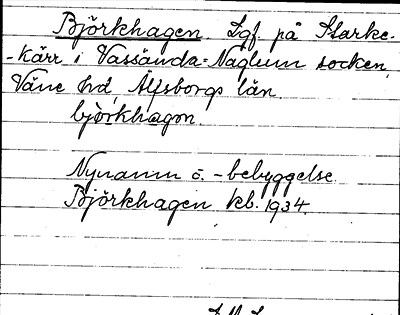 Björkhagen. Lgf. på Starke-
-kärr i Vassända-Naglum socken,
Väne hd, Älfsborgs län.
bjö̀rkhagən.
Nynamn o. -bebyggelse.
Björkhagen kb. 1934.